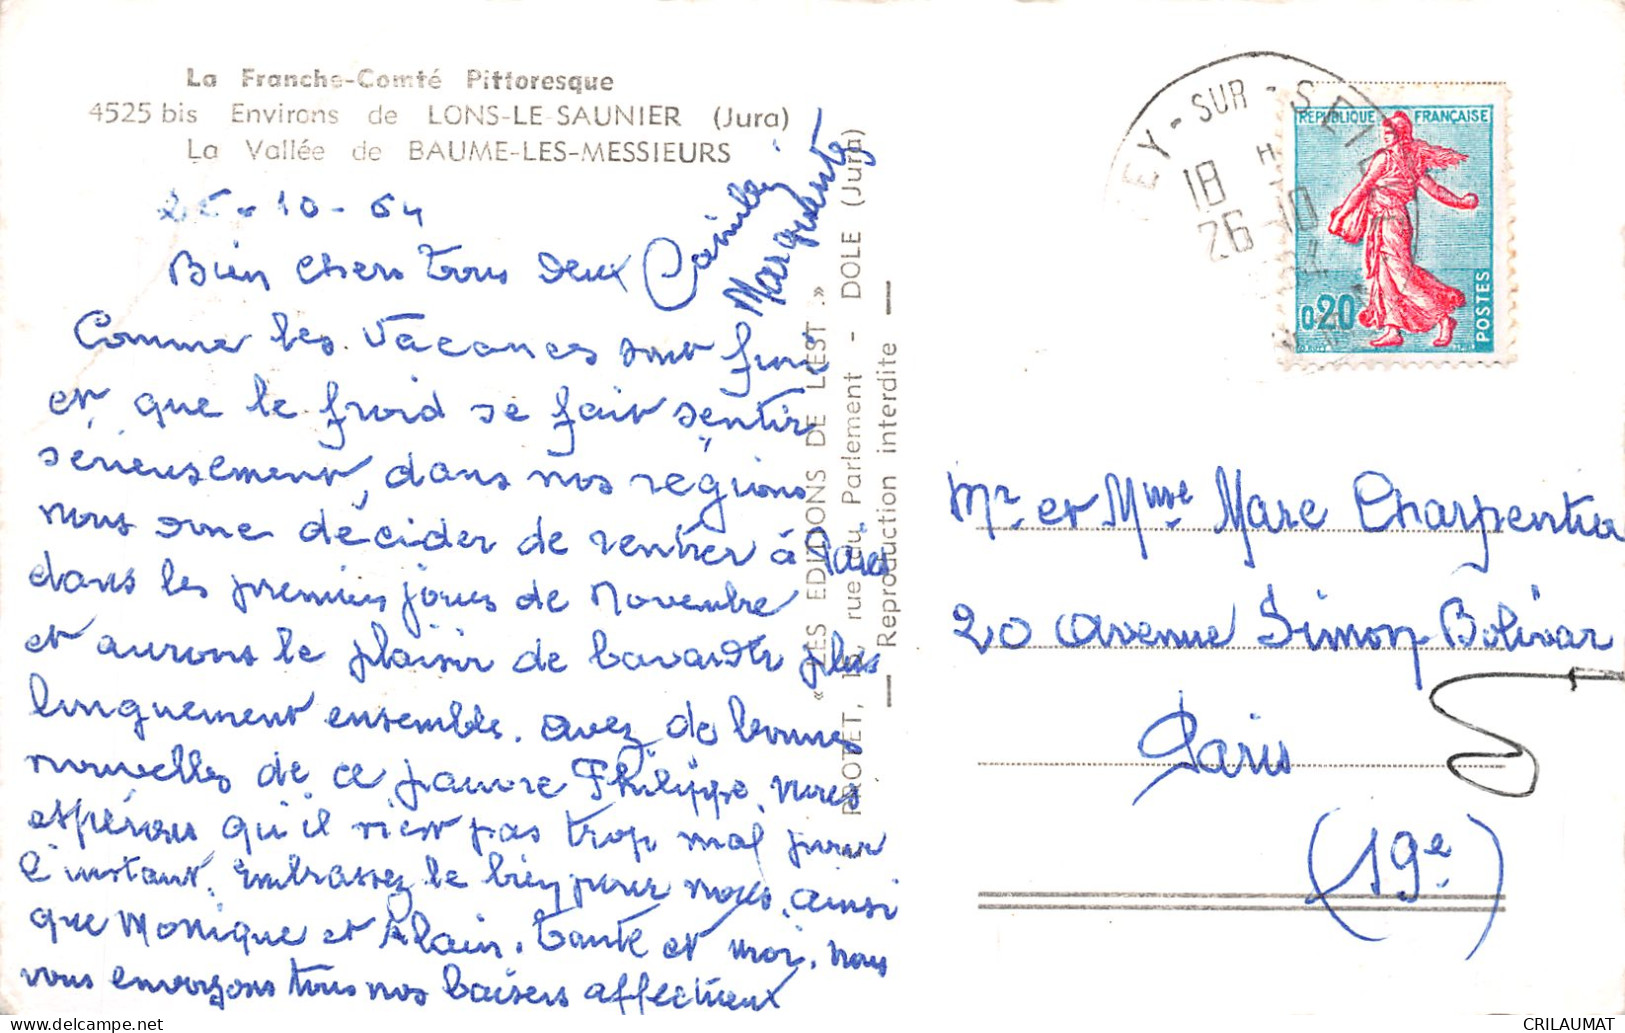 La Franche-Comté Pittoresque
4525 bis Environs de LONS-LE-SAUNIER (Jura)
La Vallée de BAUME-LES-MESSIEURS
25-10-64
Bien chers tous deux
Comme les vacances sont fini
et que le froid se fait sentir
sérieusement, dans nos régions
nous avons décider de rentrer à Paris
dans les premiers jours de Novembre
et aurons le plaisir de bavarder plus
longuement ensemble. avez de bonnes
nouvelles de ce pauvre Philippe, nous
espérons qu'il n'est pas trop mal pour
l'instant. Embrassez le bien pour nous, ainsi
que Monique et Alain. Tante et moi, nous
vous envoyons tous nos baisers affectueux
Camille
Marguerite
PROTET, rue du Parlement - DOLE (Jura)
« LES EDITIONS DE L'EST. »
— Reproduction interdite —
EY-SUR-SEIL
18 H
26-10
REPUBLIQUE FRANÇAISE
0,20
POSTES
Mr et Mme Marc Charpentier
20 avenue Simon-Bolivar
Paris
(19e)
CRILAUMAT